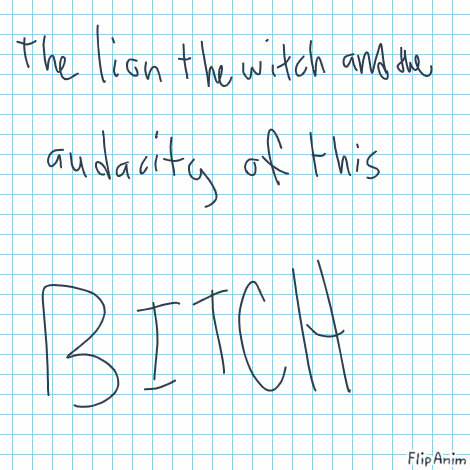 the lion the witch and the
audacity of this
BITCH
FlipAnim